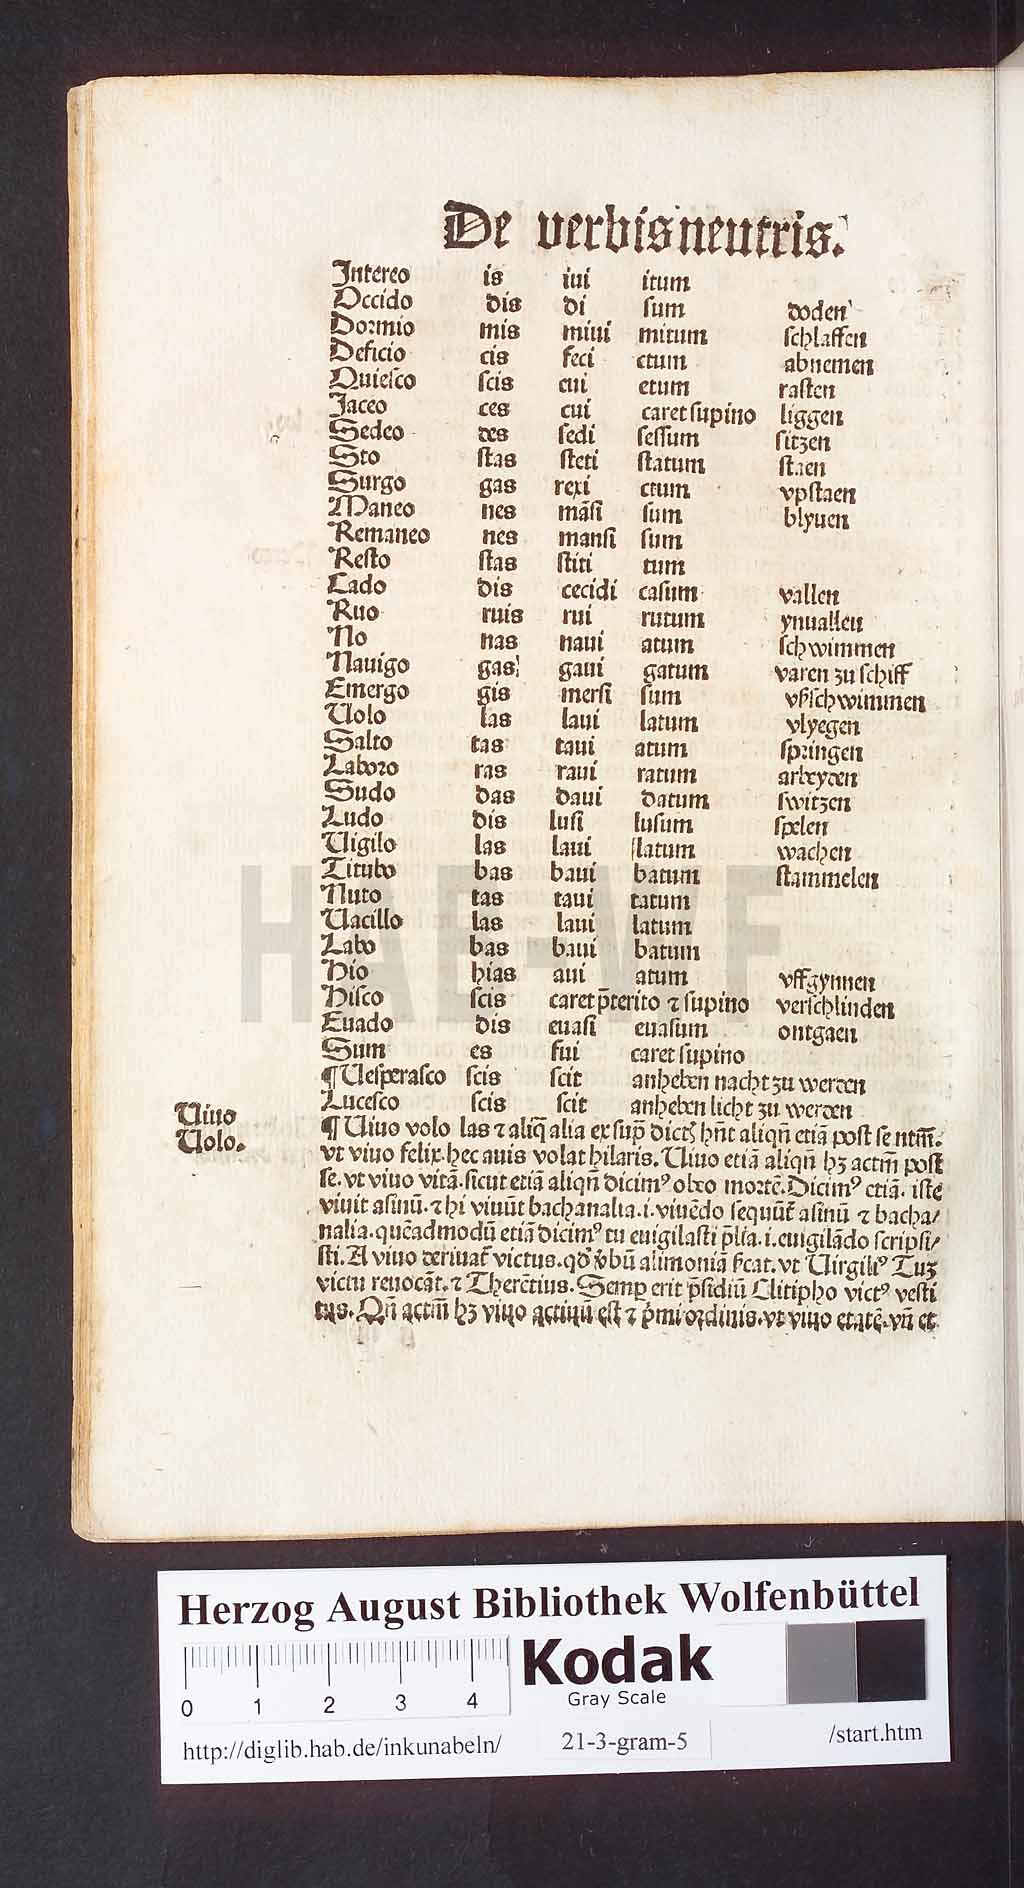 De verbis neutris.
Intereo is iui itum
Occido dis di sum doden
Dormio mis miui mitum schlaffen
Deficio cis feci ctum abnemen
Quiesco scis eui etum rasten
Jaceo ces cui caret supino liggen
Sedeo des sedi sessum sitzen
Sto stas steti statum staen
Surgo gas rexi ctum vpstaen
Maneo nes mãsi sum blyuen
Remaneo nes mansi sum
Resto stas stiti tum
Cado dis cecidi casum vallen
Ruo ruis rui rutum ynuallen
No nas naui atum schwimmen
Nauigo gas gaui gatum varen zu schiff
Emergo gis mersi sum vßschwimmen
Uolo las laui latum vlyegen
Salto tas taui atum springen
Laboro ras raui ratum arbeyden
Sudo das daui datum switzen
Ludo dis lusi lusum spelen
Uigilo las laui latum wachen
Titubo bas baui batum stammelen
Nuto tas taui tatum
Uacillo las laui latum
Labo bas baui batum
Hio hias aui atum vffgynnen
Hisco scis caret p̃terito ⁊ supino verschlinden
Euado dis euasi euasum ontgaen
Sum es fui caret supino
¶ Uesperasco scis scit anheben nacht zu werden
Lucesco scis scit anheben licht zu werden
Uiuo
Uolo.
¶ Uiuo volo las ⁊ aliq̃ alia ex sup̃ dictꝫ hñt aliqñ etiã post se ntm̃.
vt viuo felix. hec auis volat hilaris. Uiuo etiã aliqñ hꝫ actm̃ post
se. vt viuo vitã. sicut etiã aliqñ dicimꝰ obeo mortẽ. Dicimꝰ etiã. iste
viuit asinũ. ⁊ hi viuũt bachanalia .i. viuẽdo sequũt̃ asinũ ⁊ bacha/
nalia. quẽadmodũ etiã dicimꝰ tu euigilasti p̃lia .i. euigilãdo scripsi/
sti. A viuo deriuat̃ victus. qđ v̾bũ alimoniã s̾cat. vt Uirgiliꝰ Tuꝫ
victu reuocãt. ⁊ Therẽtius. Semp̱ erit p̃sidiũ Clitipho victꝰ vesti
tus. Qñ actm̃ hꝫ viuo actiuũ est ⁊ p̃mi ordinis. vt viuo etatẽ. vñ et
HAB-WF
Herzog August Bibliothek Wolfenbüttel
Kodak
Gray Scale
0 1 2 3 4
http://diglib.hab.de/inkunabeln/ 21-3-gram-5 /start.htm